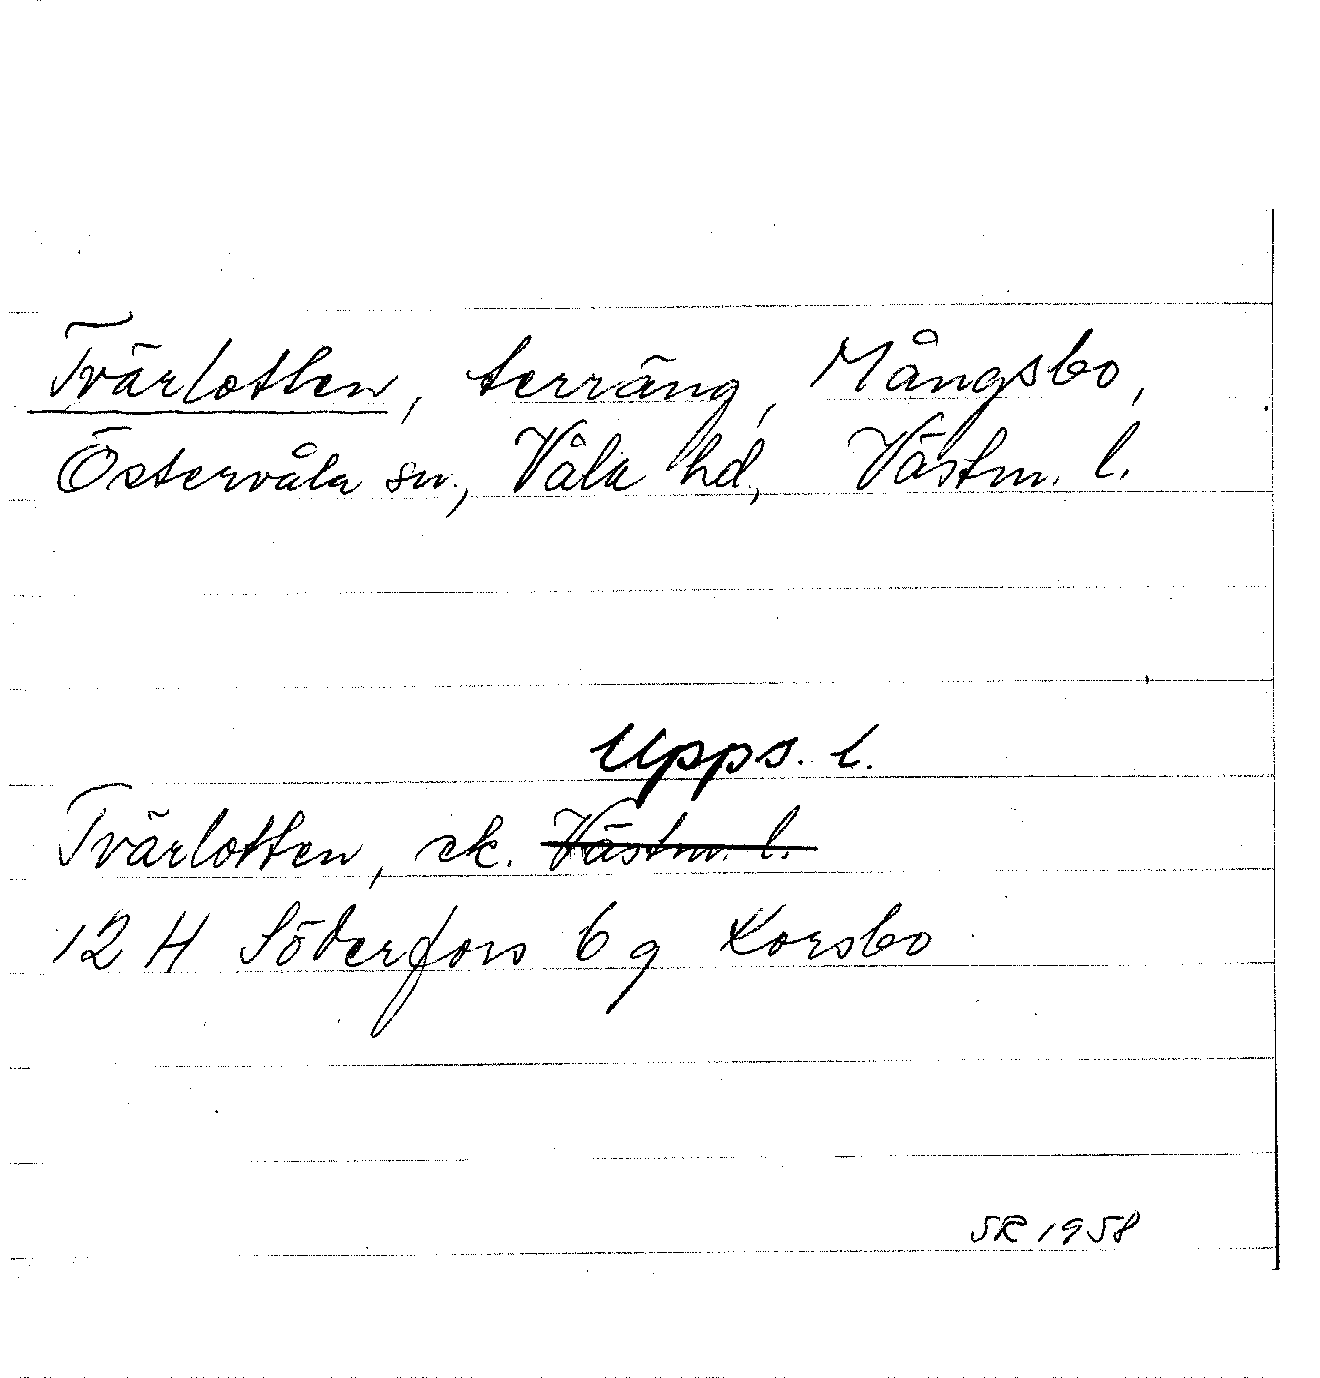 Tvärlotten, terräng, Mångsbo,
Östervåla sn., Våla hd, Västm. l.
Upps. l.
Tvärlotten, ek. Västm. l.
12 H Söderfors 6 g Korsbo
SR 1958